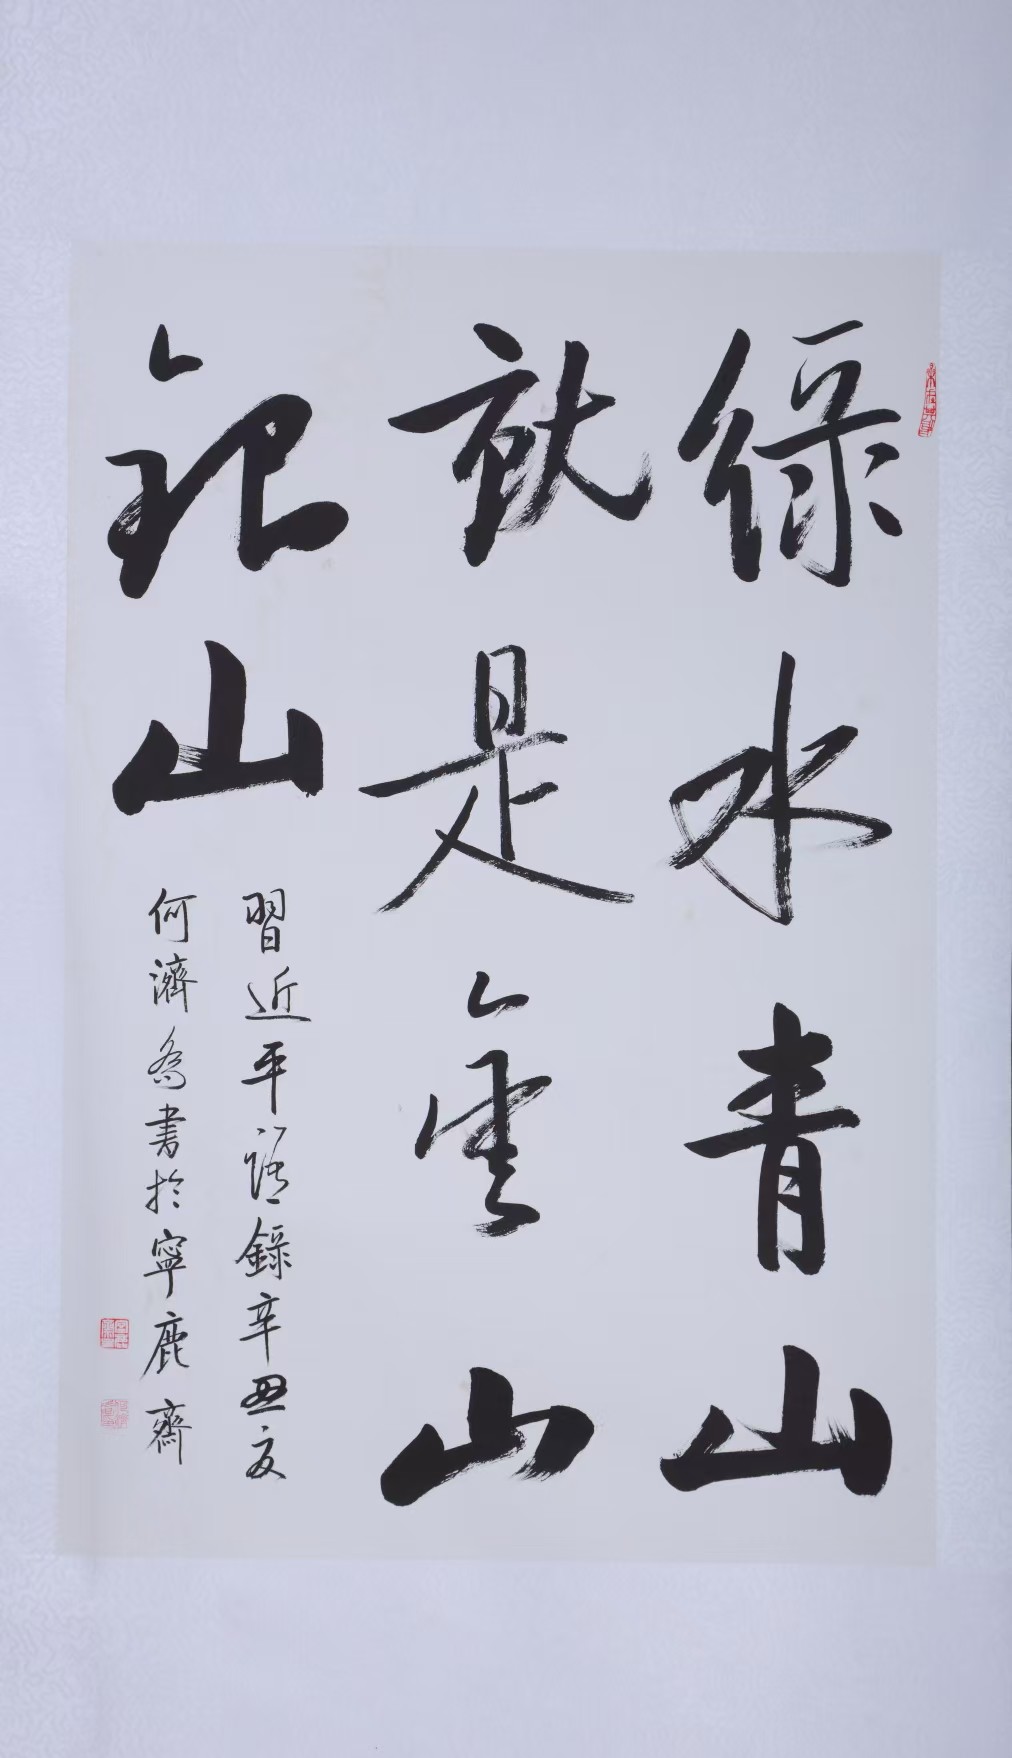 綠水青山
就是金山
銀山
習近平語錄辛丑夏
何濟為書於寧鹿齋